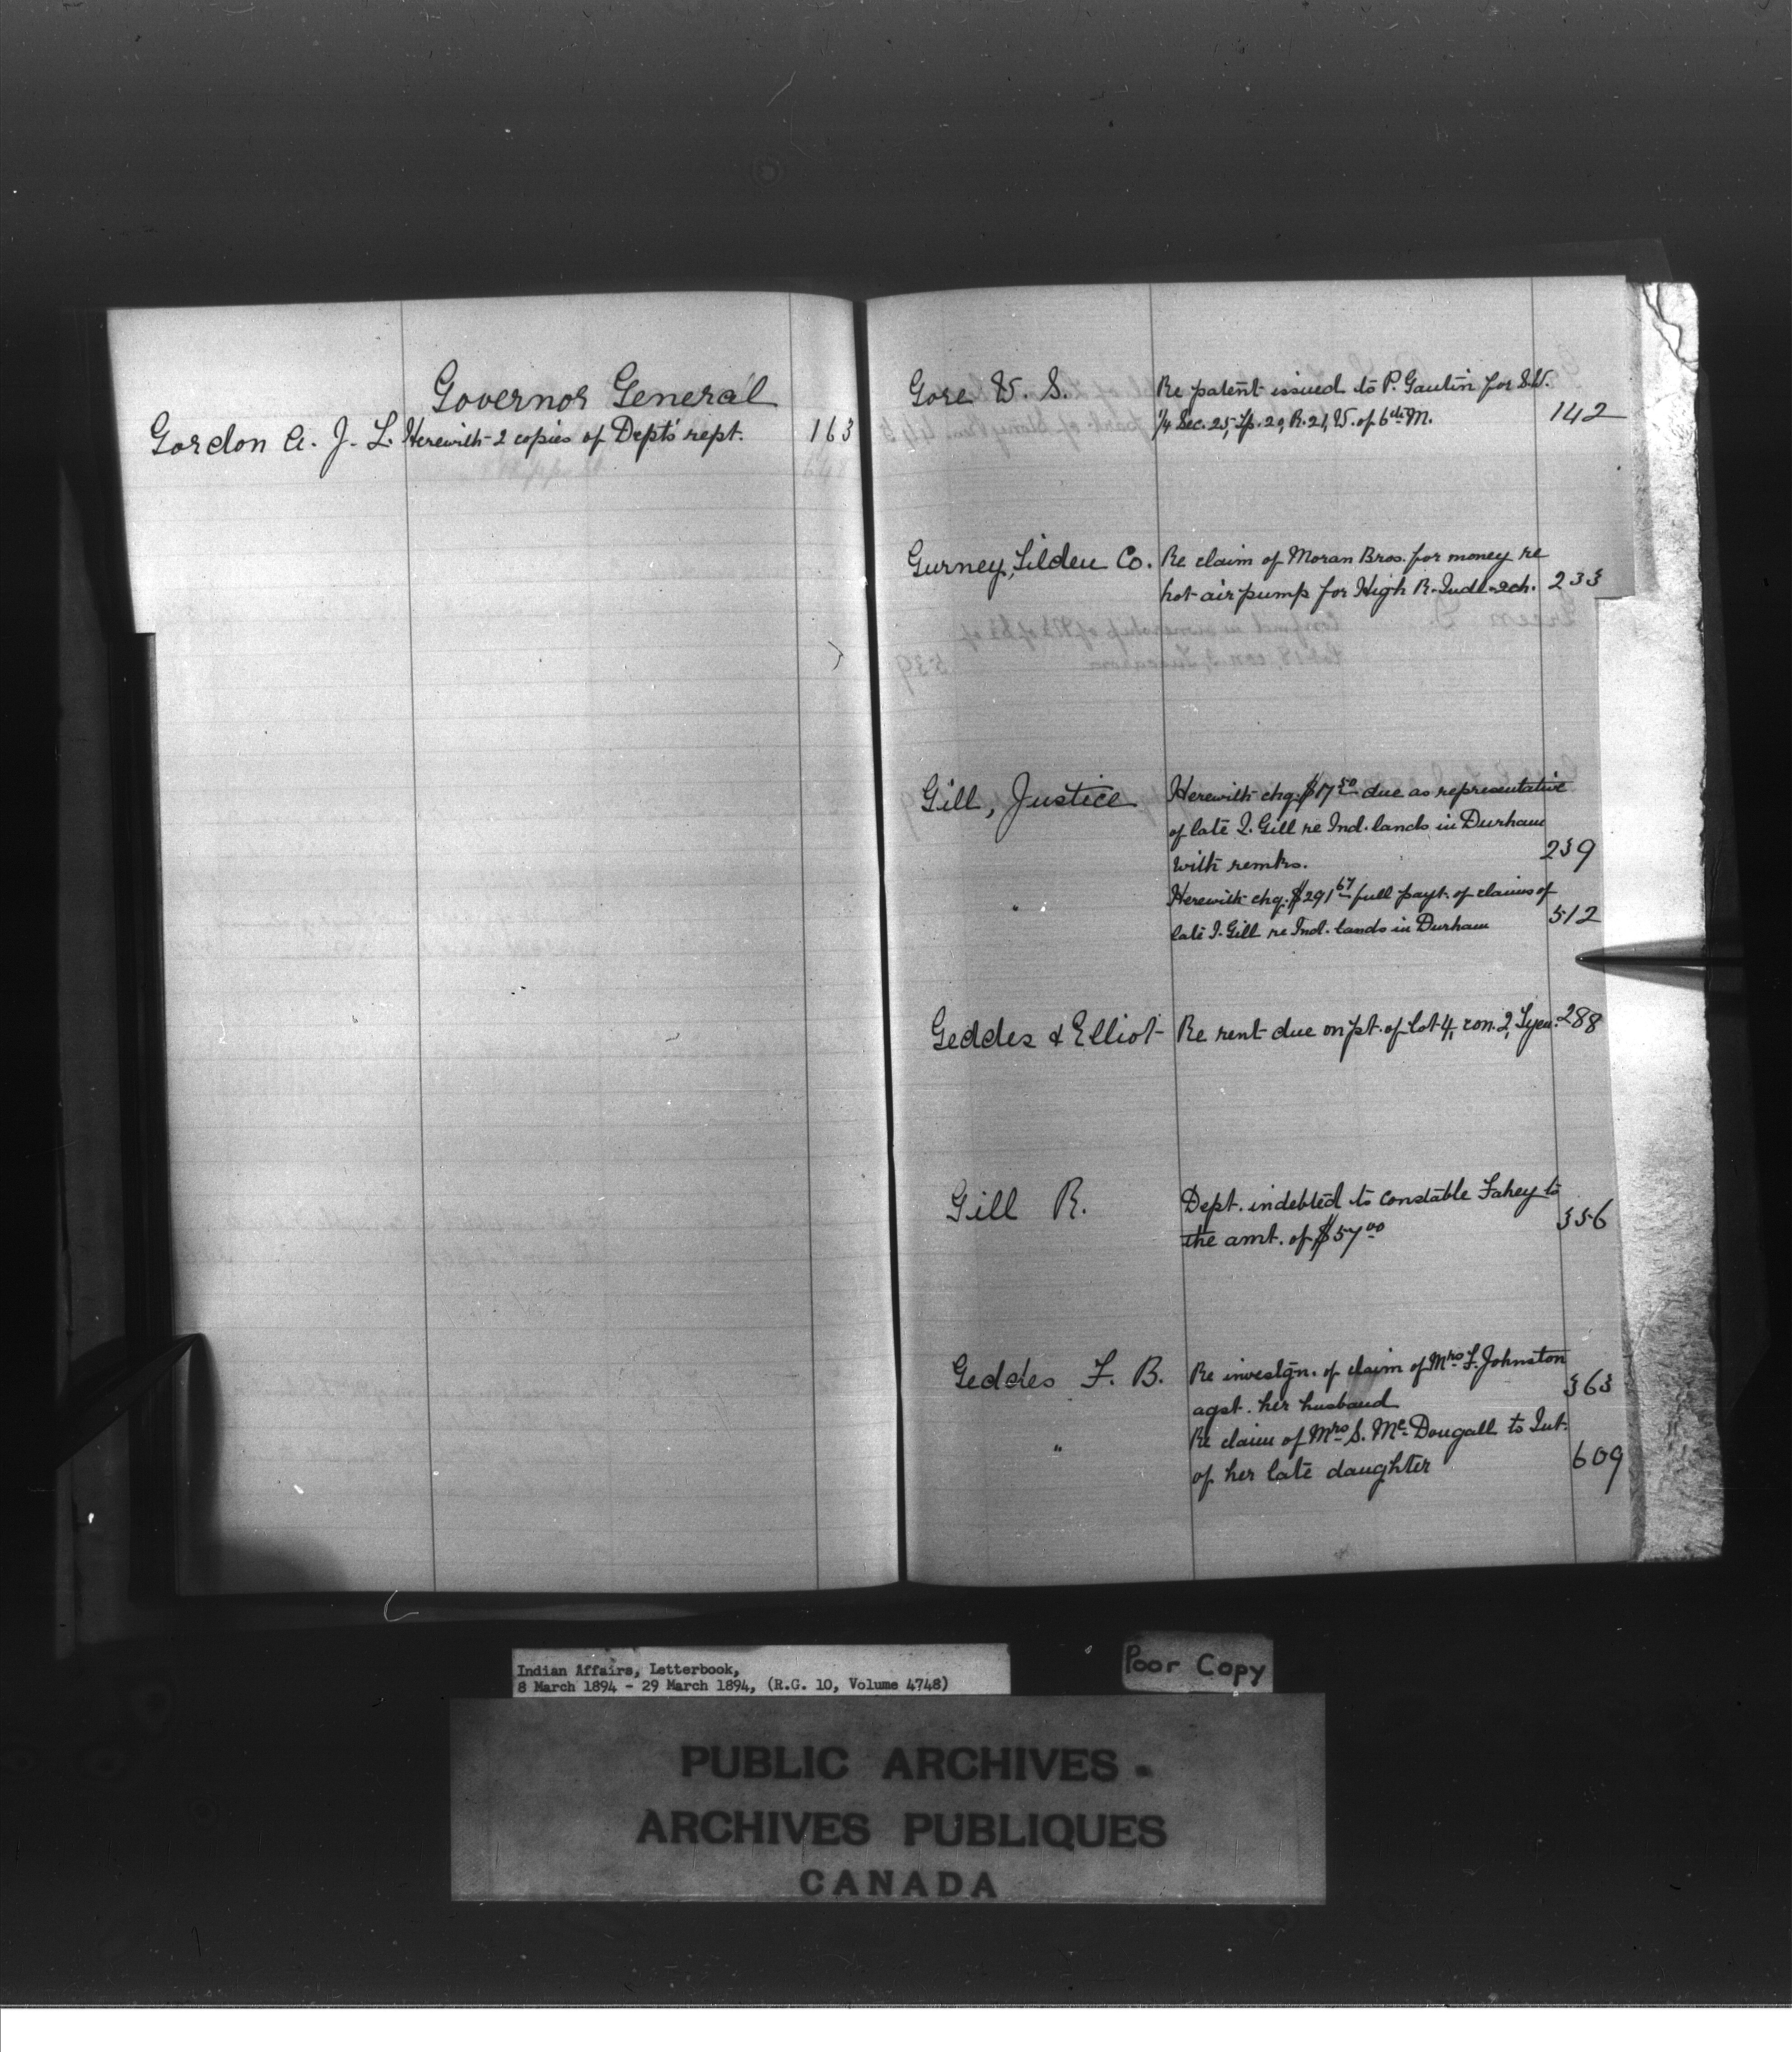 Governor General
Gordon A. J. L. Herewith 2 copies of Dept's rept. 163
Gore W. S. Re patent issued to P. Gautin for S.W.
1/4 Sec. 25, Tp. 20, R. 21, W. of 6th M. 142
Gurney, Tilden Co. Re claim of Moran Bros. for money re
hot air pump for High R. Indl. sch. 233
Gill, Justice Herewith chq. $17 50 due as representative
of late I. Gill re Ind. lands in Durham
with remks. 239
" Herewith chq. $291 67 full payt. of claims of
late I. Gill re Ind. lands in Durham 512
Geddes & Elliot Re rent due on pt. of lot 4, con. 2, Tyen. 288
Gill R. Dept. indebted to Constable Fahey to
the amt. of $57 00 356
Geddes F. B. Re investgn. of claim of Mrs F. Johnston
agst. her husband 363
" Re claim of Mrs S. Mc Dougall to Int.
of her late daughter 609
Indian Affairs, Letterbook,
8 March 1894 - 29 March 1894, (R.G. 10, Volume 4748)
Poor Copy
PUBLIC ARCHIVES
ARCHIVES PUBLIQUES
CANADA